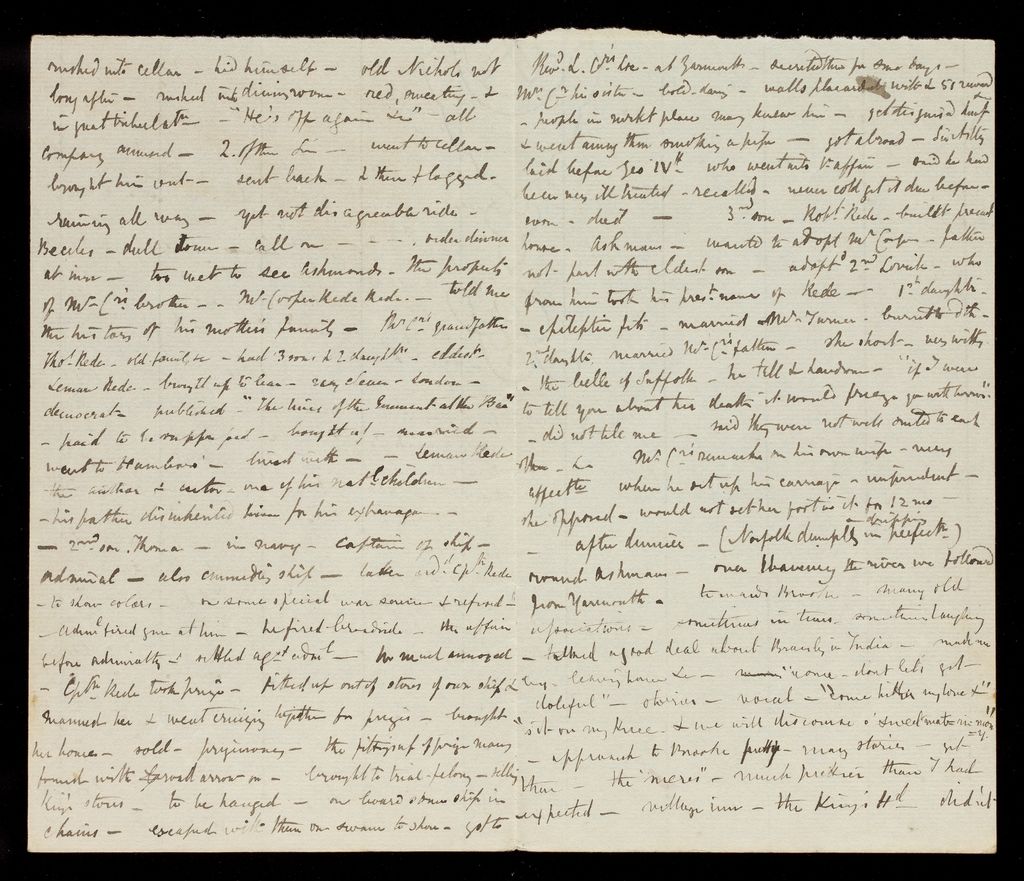 rushed into cellar – hid himself – old Nichols not
long after – rushed into diningroom – red, sweating – &
in great tribulatn – "He's off again Sir" – all
company amused – 2. of them – went to cellar –
brought him out – sent back – & then flogged –
raining all way – yet not disagreable ride –
Beccles – dull town – call on – – – . order dinner
at inn – too wet to see Ashmonds. The property
of Mr Crs brother – Mr Cooper Rede Rede. – told me
the history of his mother's family – Mr Crs grandfather
Thos Rede. old family – had 3 sons & 2 daughtrs – eldest
Leman Rede – brought up to law – very clever – London –
democrat published "The lives of the Eminent at the Bar"
– paid to be suppressed – bought up – married –
went to Hamboro' – lived with – – Leman Rede
the author & actor – one of his natl children –
– his father disinherited him for his extravagan –
– 2nd son. Thomas – in navy – captain of ship –
admiral – also commandg ship – Captn Rede
– to show colors – on some special war service & refused –
– adml fired gun at him – he fired broadside – the affair
before admiralty & settled agst adml – he much annoyed
– Captn Rede took prize – fitted up out of stores of own ship &
manned her & went cruizing together for prizes – brought
her home – sold – prize money – the fittings of prize many
found with broad arrow on – brought to trial – felony – selling
King's stores – to be hanged – on board some ship in
chains – escaped with them on swam to shore – got to
Revd L. Crs Loc – at Yarmouth – secreted him for some days –
Mrs Cr his sister – bold – daring – walls placarded with £50 reward
– people in market place many knew him – got disguised
& went among them smoking a pipe – got abroad –
laid before Geo IVth who went into the affair – said he had
been very ill treated – recalled – never could get it done before –
– died – 3rd son – Robt Rede – built present
house – Ashmans – wanted to adopt Mr Cooper – father
not part with eldest son – adoptd 2nd Lovick – who
from him took his prest name of Rede – 1st daughtr –
– epileptic fits – married Mr Turner – burnt to dth –
2nd daughtr married Mr Crs father – she short – very witty
– the belle of Suffolk – he tall & handsome – "if I were
to tell you about her death it would freeze you with horror"
– did not tell me – said they were not well suited to each
other – Mr Crs remarks on his own wife – very
affectte when he set up his carriage – imprudent –
she opposed – would not set her foot in it for 12 mo –
– after dinner – (Norfolk dumplgs & dripping in perfectn)
round Ashmans – over Waveney the river we followed
from Yarmouth – towards Brooke – many old
associations – sometimes in tears sometimes laughing
– talked a good deal about Bramley in India – made me
– leaving home &c – "come – dont lets get
doleful" – stories – vocal – "come hither my love &
"sit on my knee – & we will discourse o' sweet matrimony."
– approach to Brooke pretty – many stories – got
than – the "meres" – much prettier than I had
expected – village inn – the King's Hd didn't